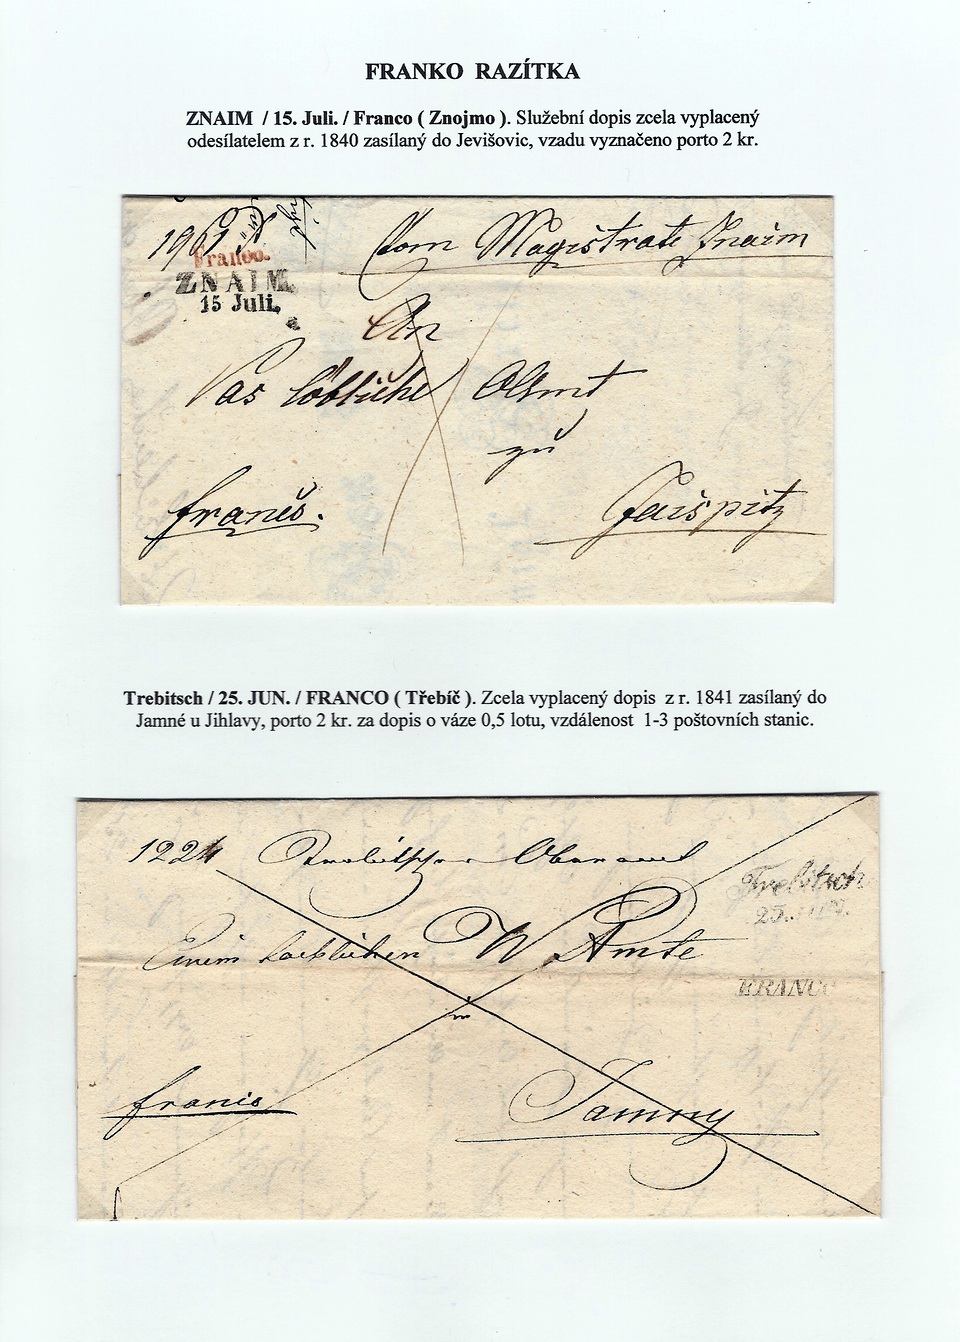 FRANKO RAZÍTKA
ZNAIM / 15. Juli. / Franco ( Znojmo ). Služební dopis zcela vyplacený
odesílatelem z r. 1840 zasílaný do Jevišovic, vzadu vyznačeno porto 2 kr.
Vom Magistrate Znaim
Franco.
ZNAIM.
15 Juli.
An
Das löbliche Obamt
zu
franco.
Gaispitz
Trebitsch / 25. JUN. / FRANCO ( Třebíč ). Zcela vyplacený dopis z r. 1841 zasílaný do
Jamné u Jihlavy, porto 2 kr. za dopis o váze 0,5 lotu, vzdálenost 1-3 poštovních stanic.
1224 Trebitscher Oberamt
Trebitsch
25. JUN.
Einem loeblichen W Amte
FRANCO
in
franco
Jamny